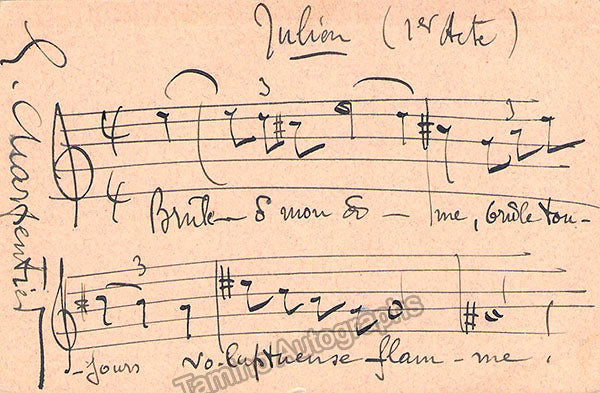 Julien (1er Acte)
G. Charpentier
3
3
4
4
Brûle — ô mon â — me, brûle tou-
3
-jours vo-luptueuse flam-me.
Tamino Autographs